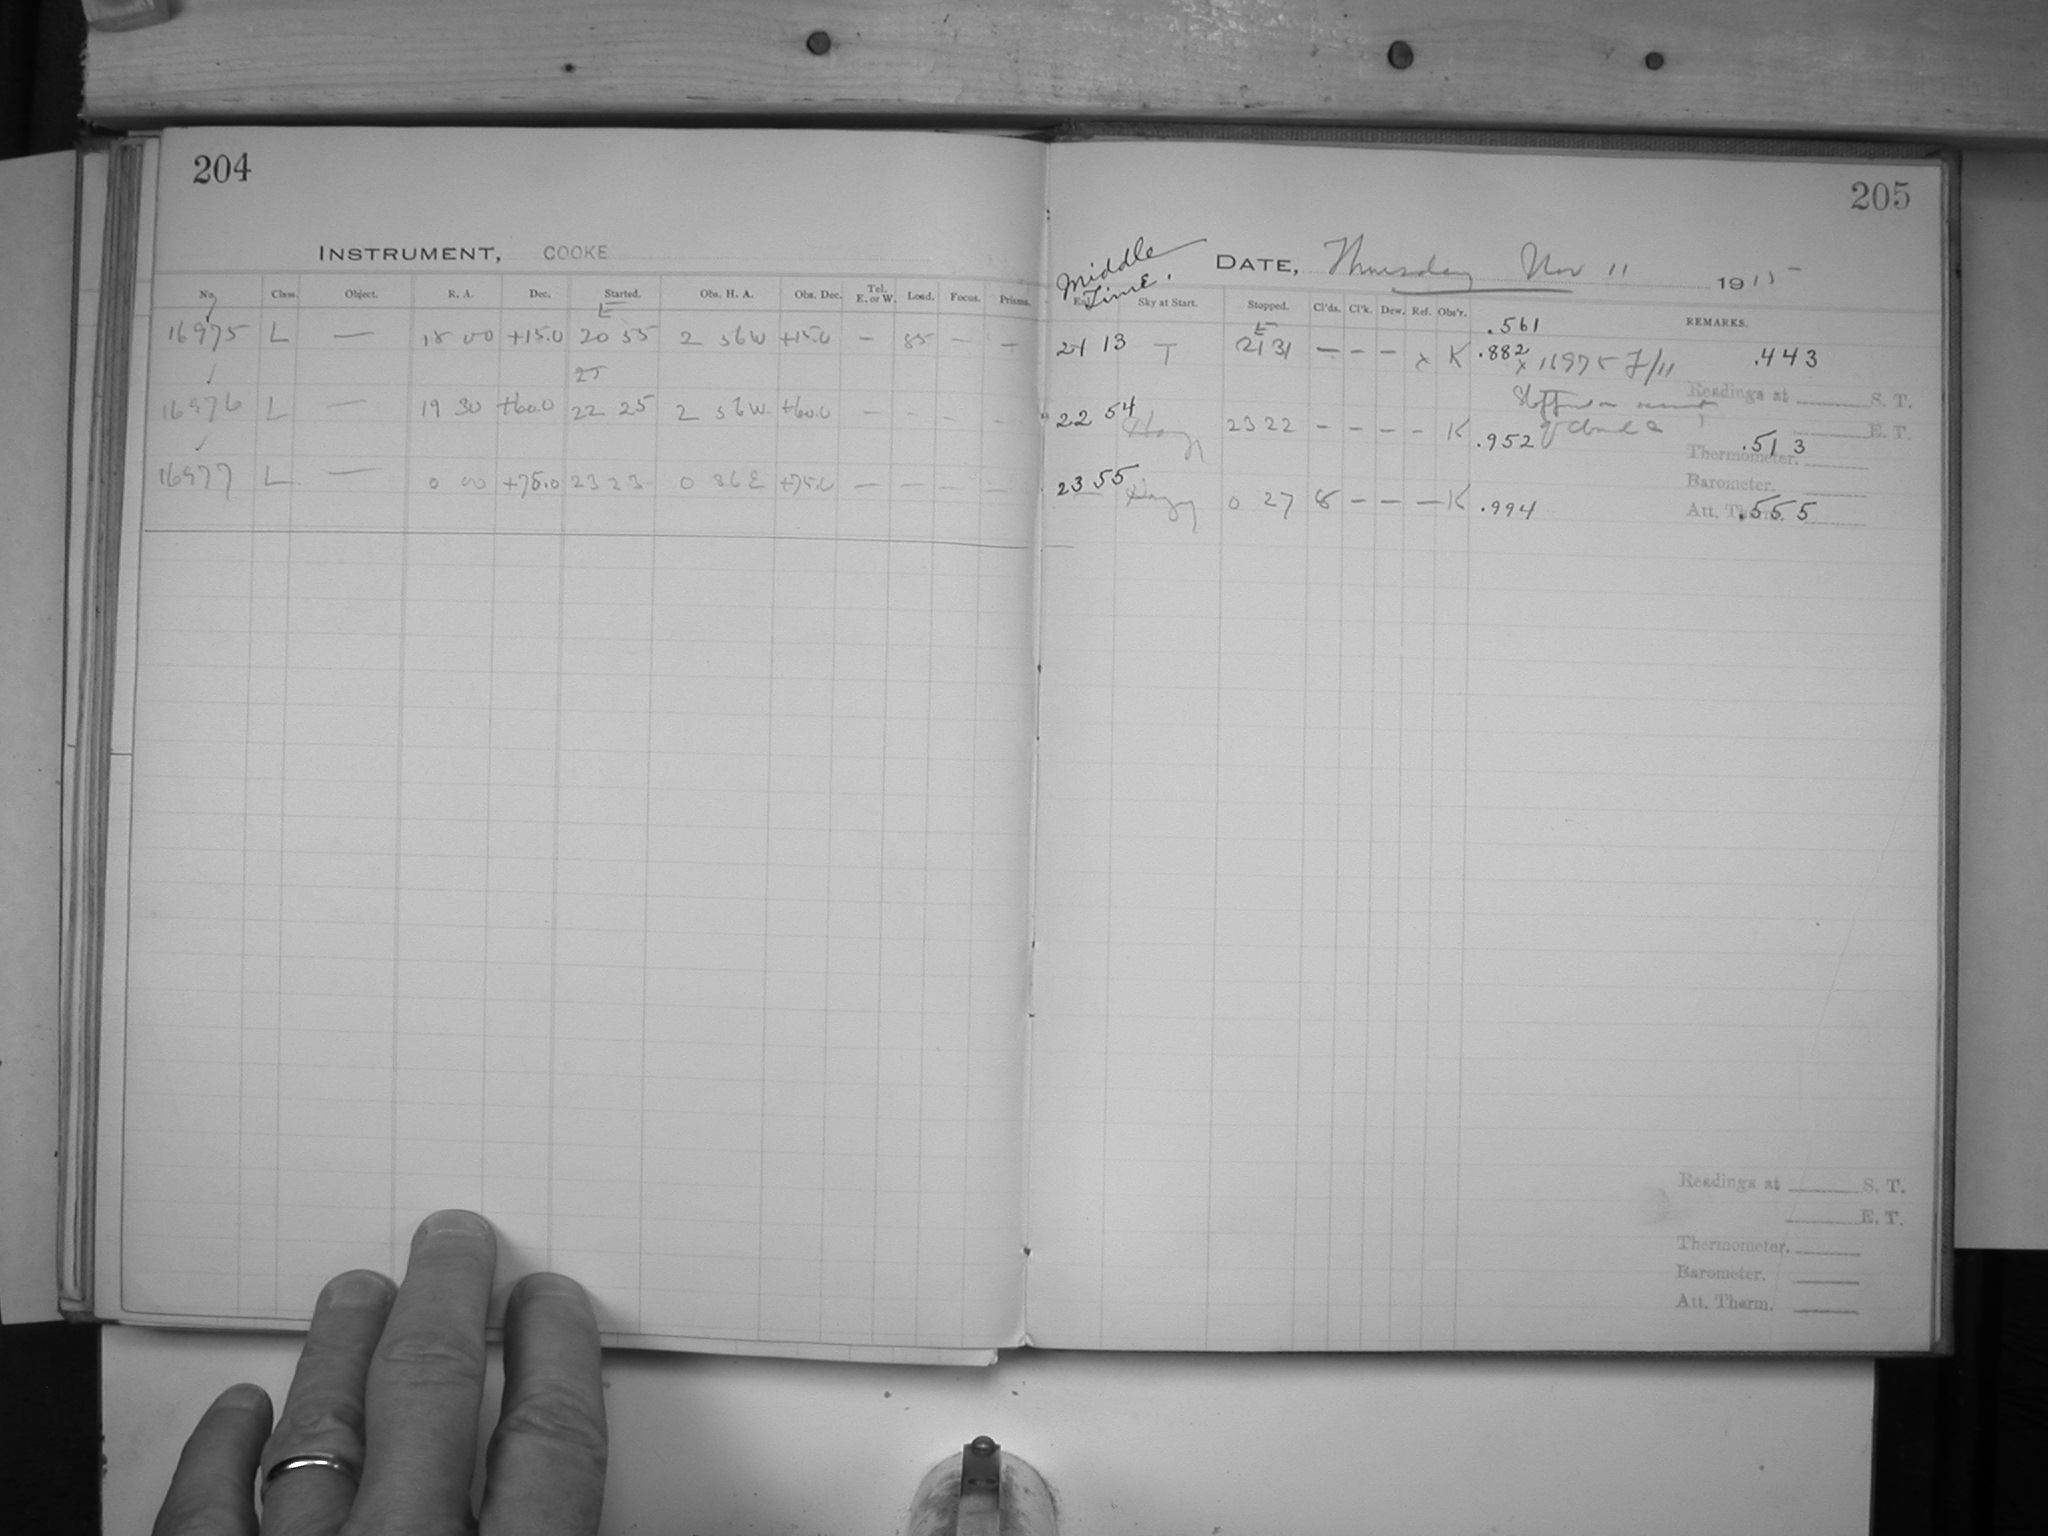 204
INSTRUMENT, COOKE
No. Class. Object. R. A. Dec. Started. Obs. H. A. Obs. Dec. Tel. E. or W. Load. Focus. Prisms.
E
16975 L — 18 00 +15.0 20 55 2 56W +15.0 — 85 — —
25
16976 L — 19 30 +60.0 22 25 2 56W +60.0 — - - -
16977 L — 0 00 +75.0 23 23 0 36E +75.0 — — — —
205
Middle Time.
DATE, Thursday Nov 11 1915
Sky at Start. Stopped. Cl'ds. Cl'k. Dew. Ref. Obs'r. REMARKS.
E .561
21 13 T 21 31 — — — x K .882 x 16975 F/11 .443
Readings at S. T.
22 54 Hazy 23 22 — — — — K .952 of clouds .513
E. T.
Thermometer.
Barometer.
23 55 Hazy 0 27 8 — — — K .994 .555
Att. Therm.
Readings at S. T.
E. T.
Thermometer.
Barometer.
Att. Therm.